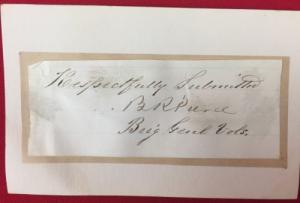 Respectfully Submitted
B R Pierce
Brig Genl Vols.